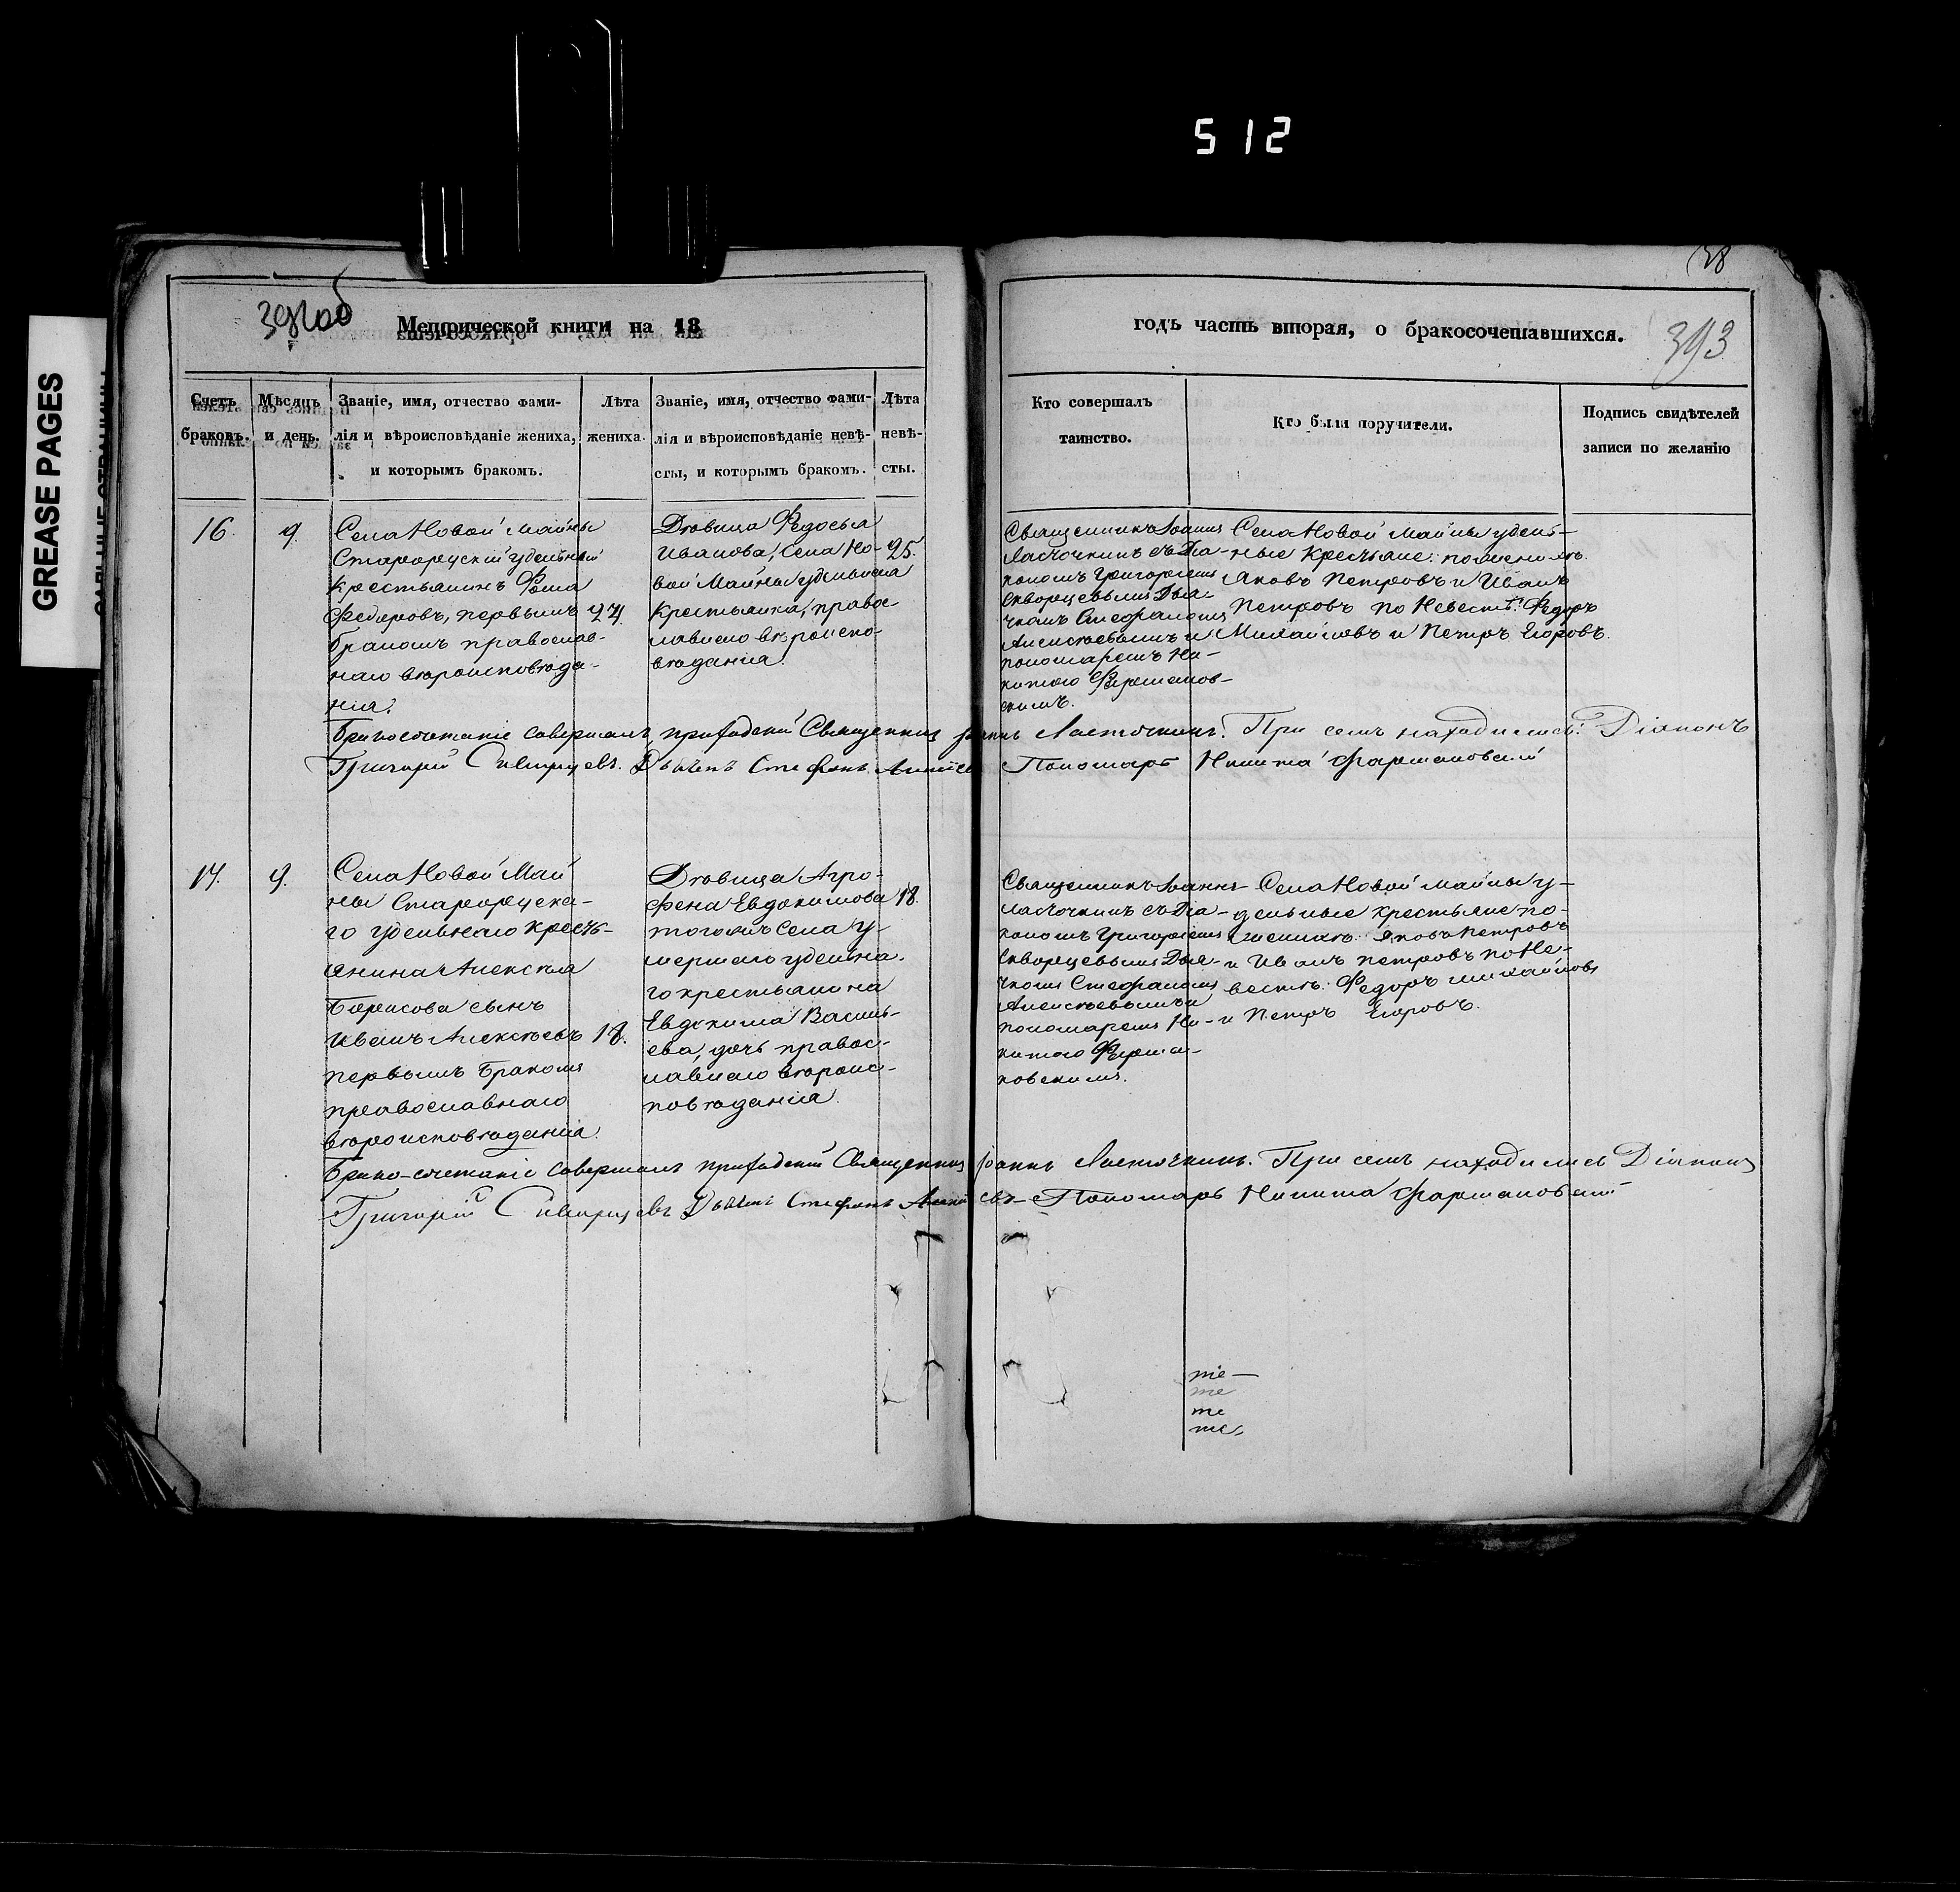 512
GREASE PAGES
392об
Метрической книги на 18
годъ часть вторая, о бракосочетавшихся.
393
Счетъ браковъ.
Мѣсяцъ и день.
Званіе, имя, отчество фами-
лія и вѣроисповѣданіе жениха,
и которымъ бракомъ.
Лѣта
жениха.
Званіе, имя, отчество фами-
лія и вѣроисповѣданіе невѣ-
сты, и которымъ бракомъ.
Лѣта
невѣ-
сты.
Кто совершалъ
таинство.
Кто были поручители.
Подпись свидѣтелей
записи по желанію
16.
9
Села Новой Майны
Старорускій удельный
крестьянинъ Фома
Федоровъ, первымъ
бракомъ православ-
наго вѣроисповѣда-
нія.
24
Дѣвица Федосья
Иванова, Села Но-
вой Майны удельная
крестьянка, правос-
лавнаго вѣроиспо-
вѣданія.
25.
Священникъ Іоаннъ
Ласточкинъ съ Діа-
кономъ Григоріемъ
Скворцевымъ Дья-
чкомъ Стефаномъ
Алексѣевымъ и
пономаремъ Ни-
китою Фармаков-
скимъ.
Села Новой Майны удель-
ные крестьяне: по женихѣ.
Яковъ Петровъ и Иванъ
Петровъ по Невестѣ: Федоръ
Михайловъ и Петръ Егоровъ.
Бракосочетаніе совершалъ приходскій Священникъ Іоаннъ Ласточкинъ. При семъ находились: Діаконъ
Григорій Дьячекъ Стефанъ Пономарь Никита Фармаковскій
17.
9.
Села Новой Май
ны Старорускa-
го удельнаго кресть-
янина Алексѣя
Борисова сынъ
Иванъ Алексѣевъ
первымъ бракомъ
православнаго
вѣроисповѣданія.
18.
Дѣвица Агро-
фена Евдокимова
тогожъ Села у-
мершаго удельна-
го крестьянина
Евдокима Василь-
ева, дочь правос-
лавнаго вѣроис-
повѣданія.
18.
Священникъ Іоаннъ
Ласточкинъ съ Діа-
кономъ Григоріемъ
Скворцевымъ Дья-
чкомъ Стефаномъ
Алексѣевымъ и
пономаремъ Ни-
китою Фарма-
ковскимъ.
Села Новой Майны у-
дельные крестьяне по-
женихѣ. Яковъ Петровъ
и Иванъ Петровъ по Не-
вестѣ: Федоръ Михайловъ
и Петръ Егоровъ.
Брако-сочетаніе совершалъ приходскій Священникъ Іоаннъ Ласточкинъ. При семъ находились Діаконъ
Григорій Дьячекъ Стефанъ Пономарь Никита Фармаковскій
те
те
те
те